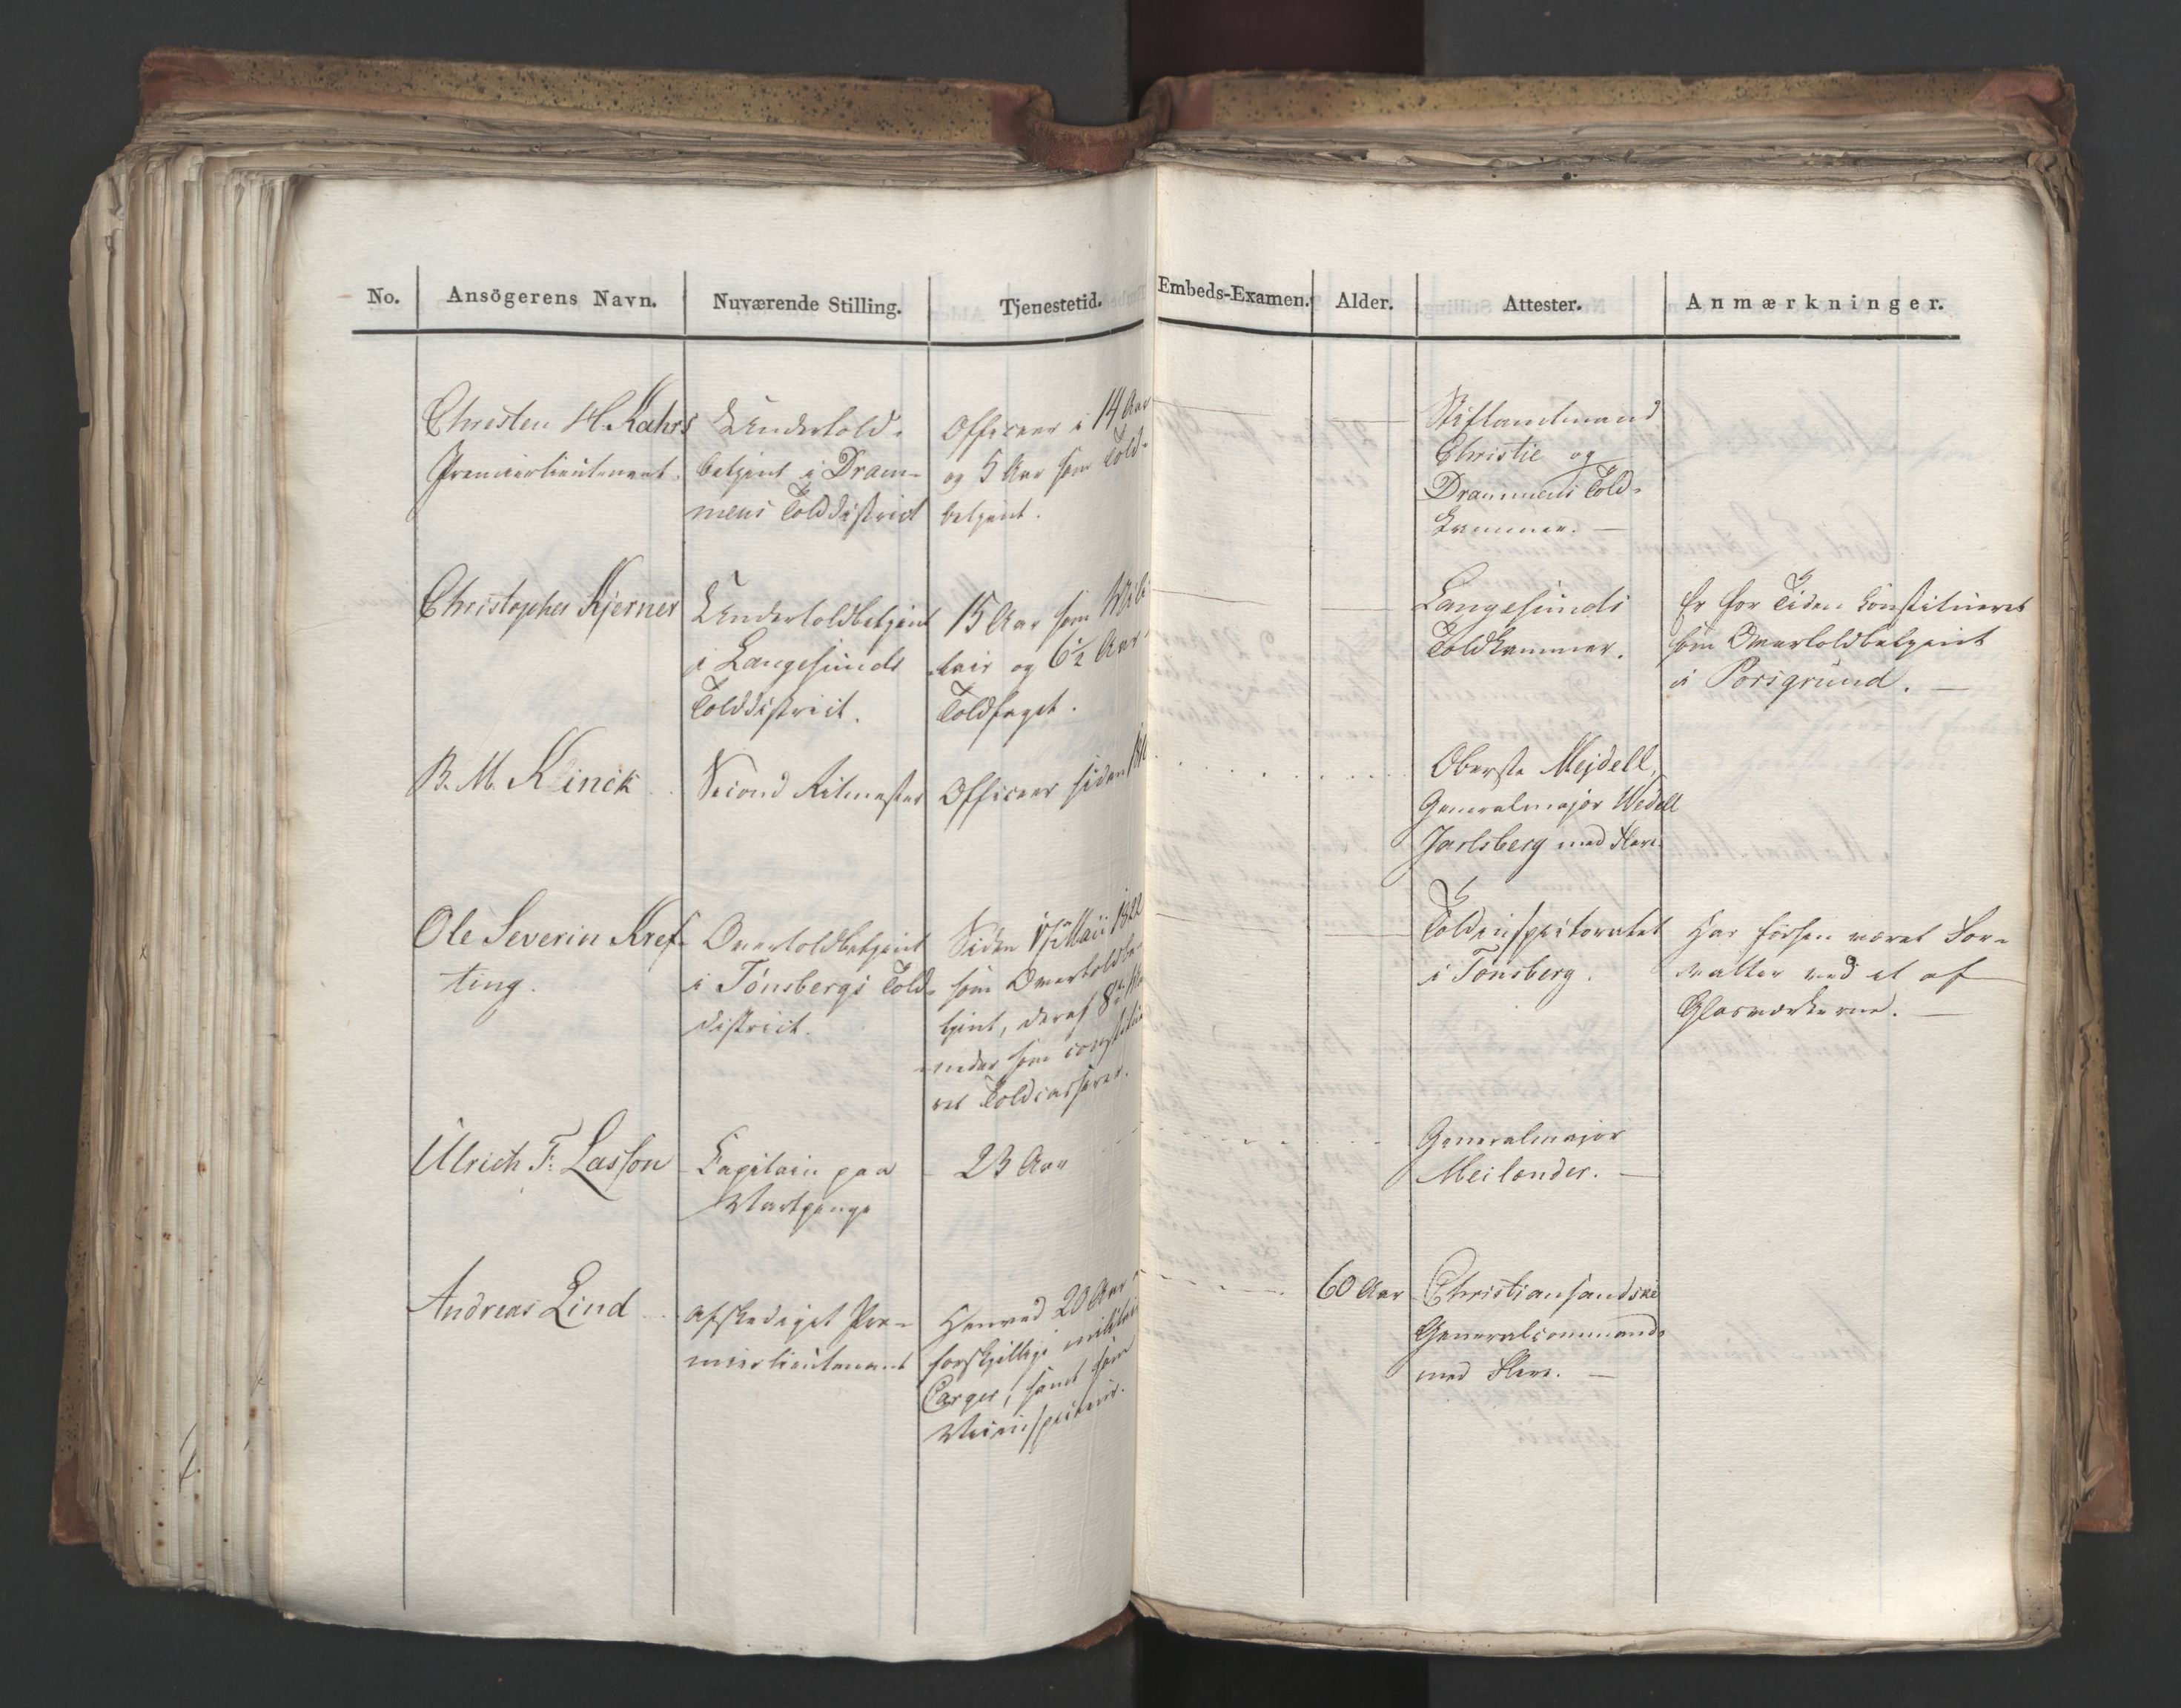 No. Ansögerens Navn. Nuværende Stilling. Tjenestetid. Embeds-Examen. Alder. Attester. Anmærkninger.
Christen H. Kahrs
Premierlieutenant.
Undertold-
betjent i Dram-
mens Tolddistrict
Officeer i 14 Aar
og 5 Aar som Told-
betjent.
Stiftamtmand
Christie og
Drammens Told-
kammer. —
Christopher Kjerner
Undertoldbetjent
i Langesunds
Tolddistrict.
15 Aar som Mili-
tair og 6½ Aar i
Toldfaget.
Langesunds
Toldkammer.
Er for Tiden konstitueret
som Overtoldbetjent
i Porsgrund. —
B. M. Kinck
Second Ritmester
Officeer siden
Oberste Mejdell,
Generalmajor Wedell
Jarlsberg med Flere.
Ole Severin Kref-
ting.
Overtoldbetjent
i Tönsbergs Told-
district.
Siden Maii 1822
som Overtoldbe-
tjent, deraf 8
neder som constitue-
ret Toldcasserer.
Toldinspectoratet
i Tonsberg.
Har förhen været For-
valter ved et af
Glasværkerne. —
Ulrich F. Lasson
Capitain paa
Vartpenge
23 Aar
Generalmajor
Meilander. —
Andreas Lind
afskediget Pre-
mierlieutenant
Henved 20 Aar i
forskjellige militaire
Carger, samt som
Veiinspecteur.
60 Aar
Christiansandske
Generalcommando
med Flere. —